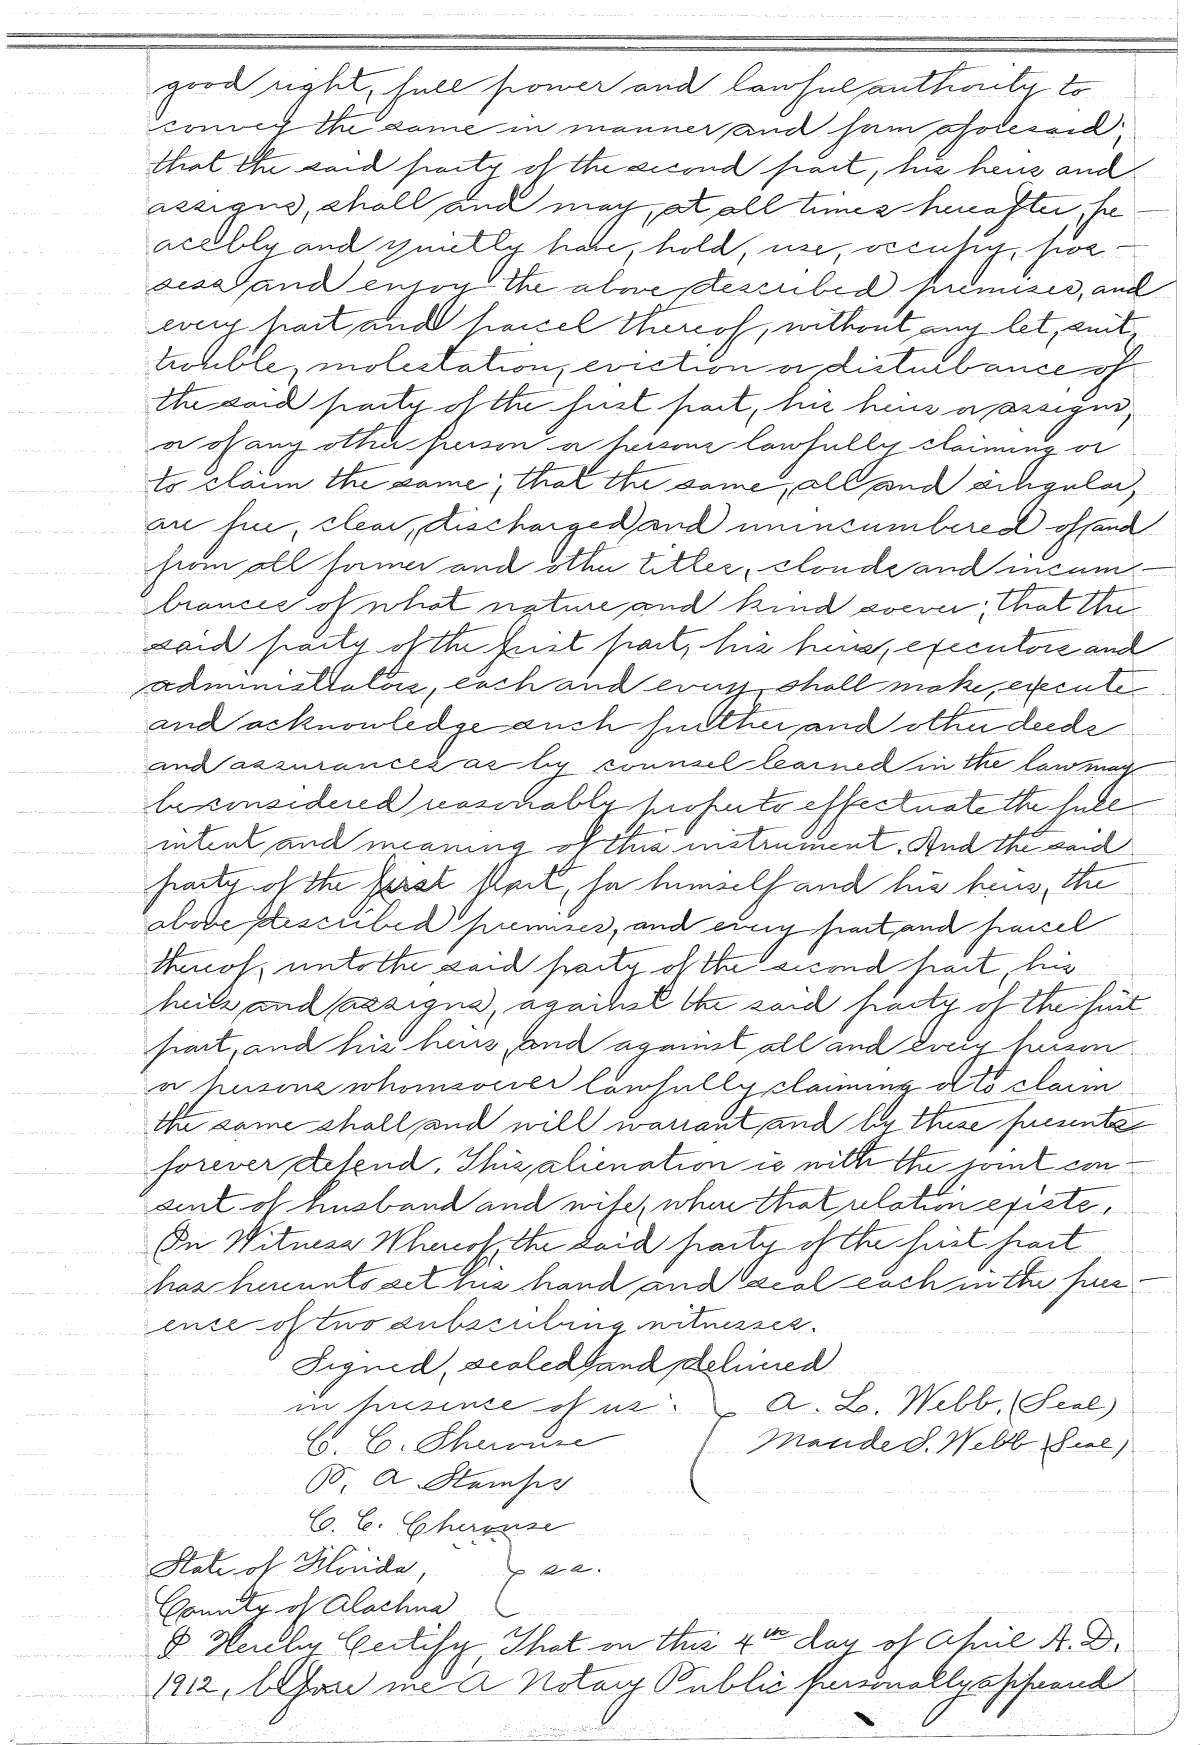 good right, full power and lawful authority to
convey the same in manner and form aforesaid;
that the said party of the second part, his heirs and
assigns, shall and may, at all times hereafter, pe-
acebly and quietly have, hold, use, occupy, pos-
sess and enjoy the above described premises, and
every part and parcel thereof, without any let, suit,
trouble, molestation, eviction or disturbance of
the said party of the first part, his heirs or assigns,
or of any other person or persons lawfully claiming or
to claim the same; that the same, all and singular,
are free, clear, discharged and unincumbered of and
from all former and other titles, clouds and incum-
brances of what nature and kind soever; that the
said party of the first part, his heirs, executors and
administrators, each and every, shall make, execute
and acknowledge such further and other deeds
and assurances as by counsel learned in the law may
be considered reasonably proper to effectuate the full
intent and meaning of this instrument. And the said
party of the first part, for himself and his heirs, the
above described premises, and every part and parcel
thereof, unto the said party of the second part, his
heirs and assigns, against the said party of the first
part, and his heirs, and against all and every person
or persons whomsoever lawfully claiming or to claim
the same shall and will warrant and by these presents
forever defend. This alienation is with the joint con-
sent of husband and wife, where that relation exists.
In Witness Whereof, the said party of the first part
has hereunto set his hand and seal each in the pres-
ence of two subscribing witnesses.
Signed, sealed and delivered
in presence of us: A. L. Webb, (Seal)
C. C. Sherouse Maude S. Webb (Seal)
P. A. Stamps
C. C. Cherouse
State of Florida, ss.
County of Alachua
I Hereby Certify, That on this 4th day of April A. D.
1912, before me A Notary Public personally appeared